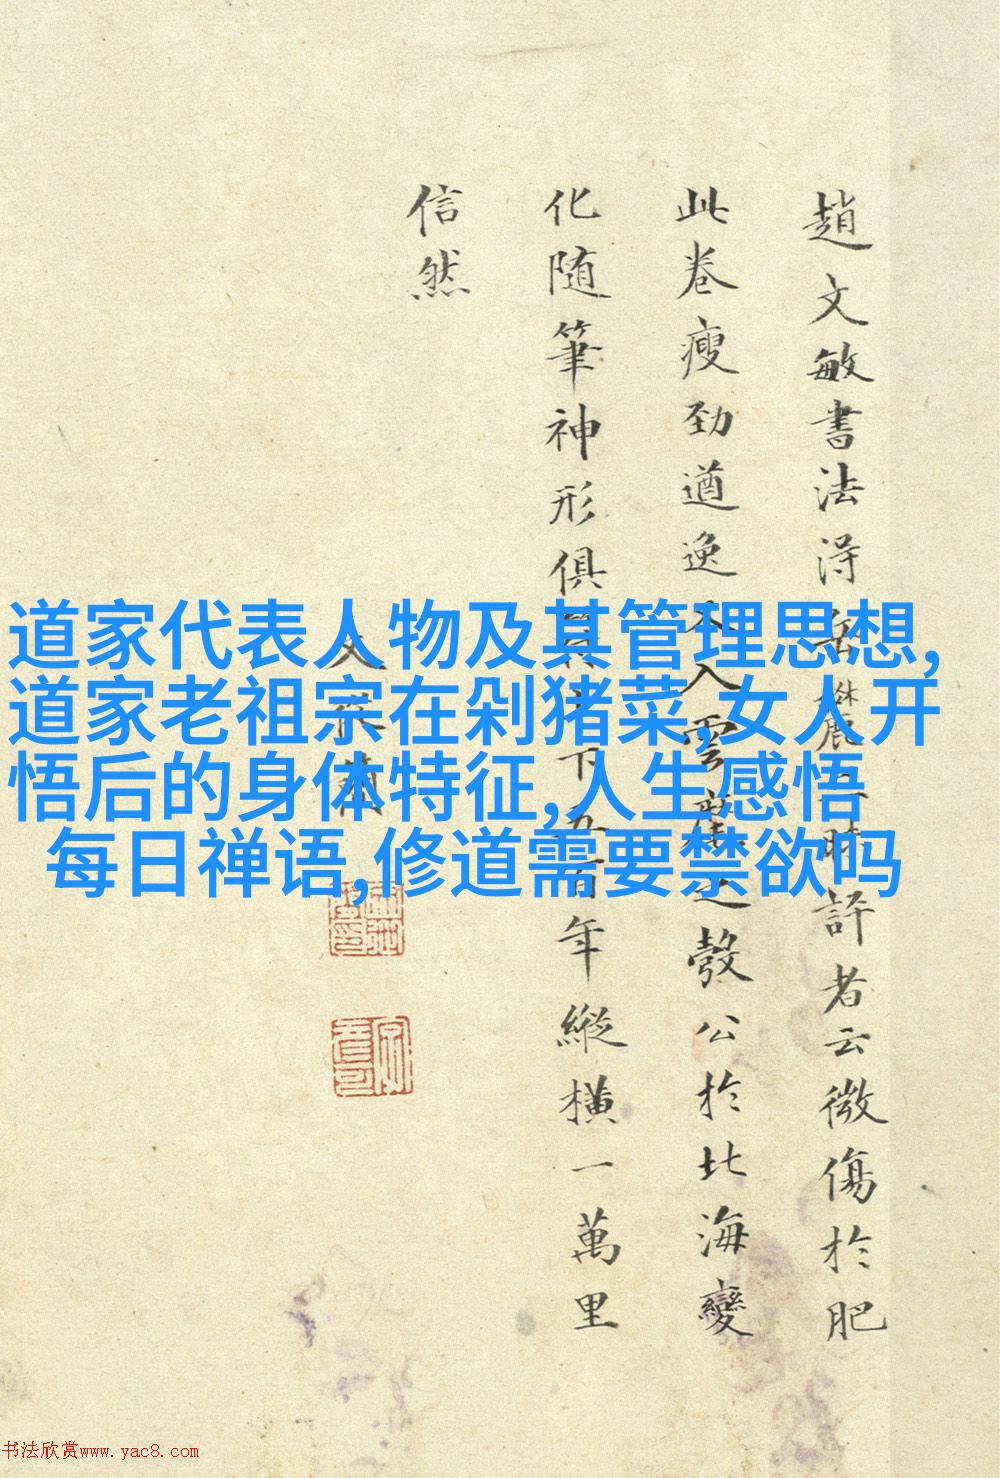 趙文敏書法淂岳麓三昧評者云微傷於肥
此卷瘦劲遒逸不入雲麾之彀公於北海變
化随筆神形俱下五百年縱橫一萬里
信然
文從簡
道家代表人物及其管理思想,
道家老祖宗在剁猪菜,女人开
悟后的身体特征,人生感悟
每日禅语,修道需要禁欲吗
书法欣赏www.yac8.com